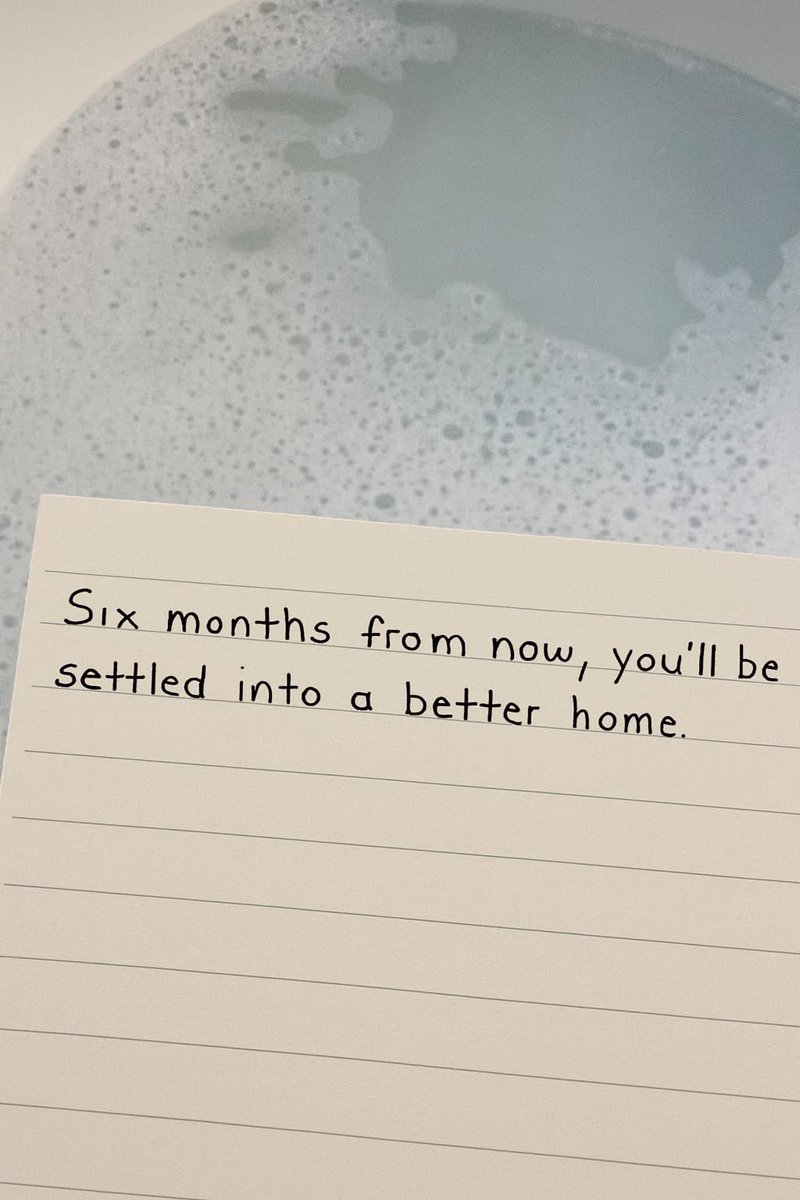 Six months from now, you'll be
settled into a better home.